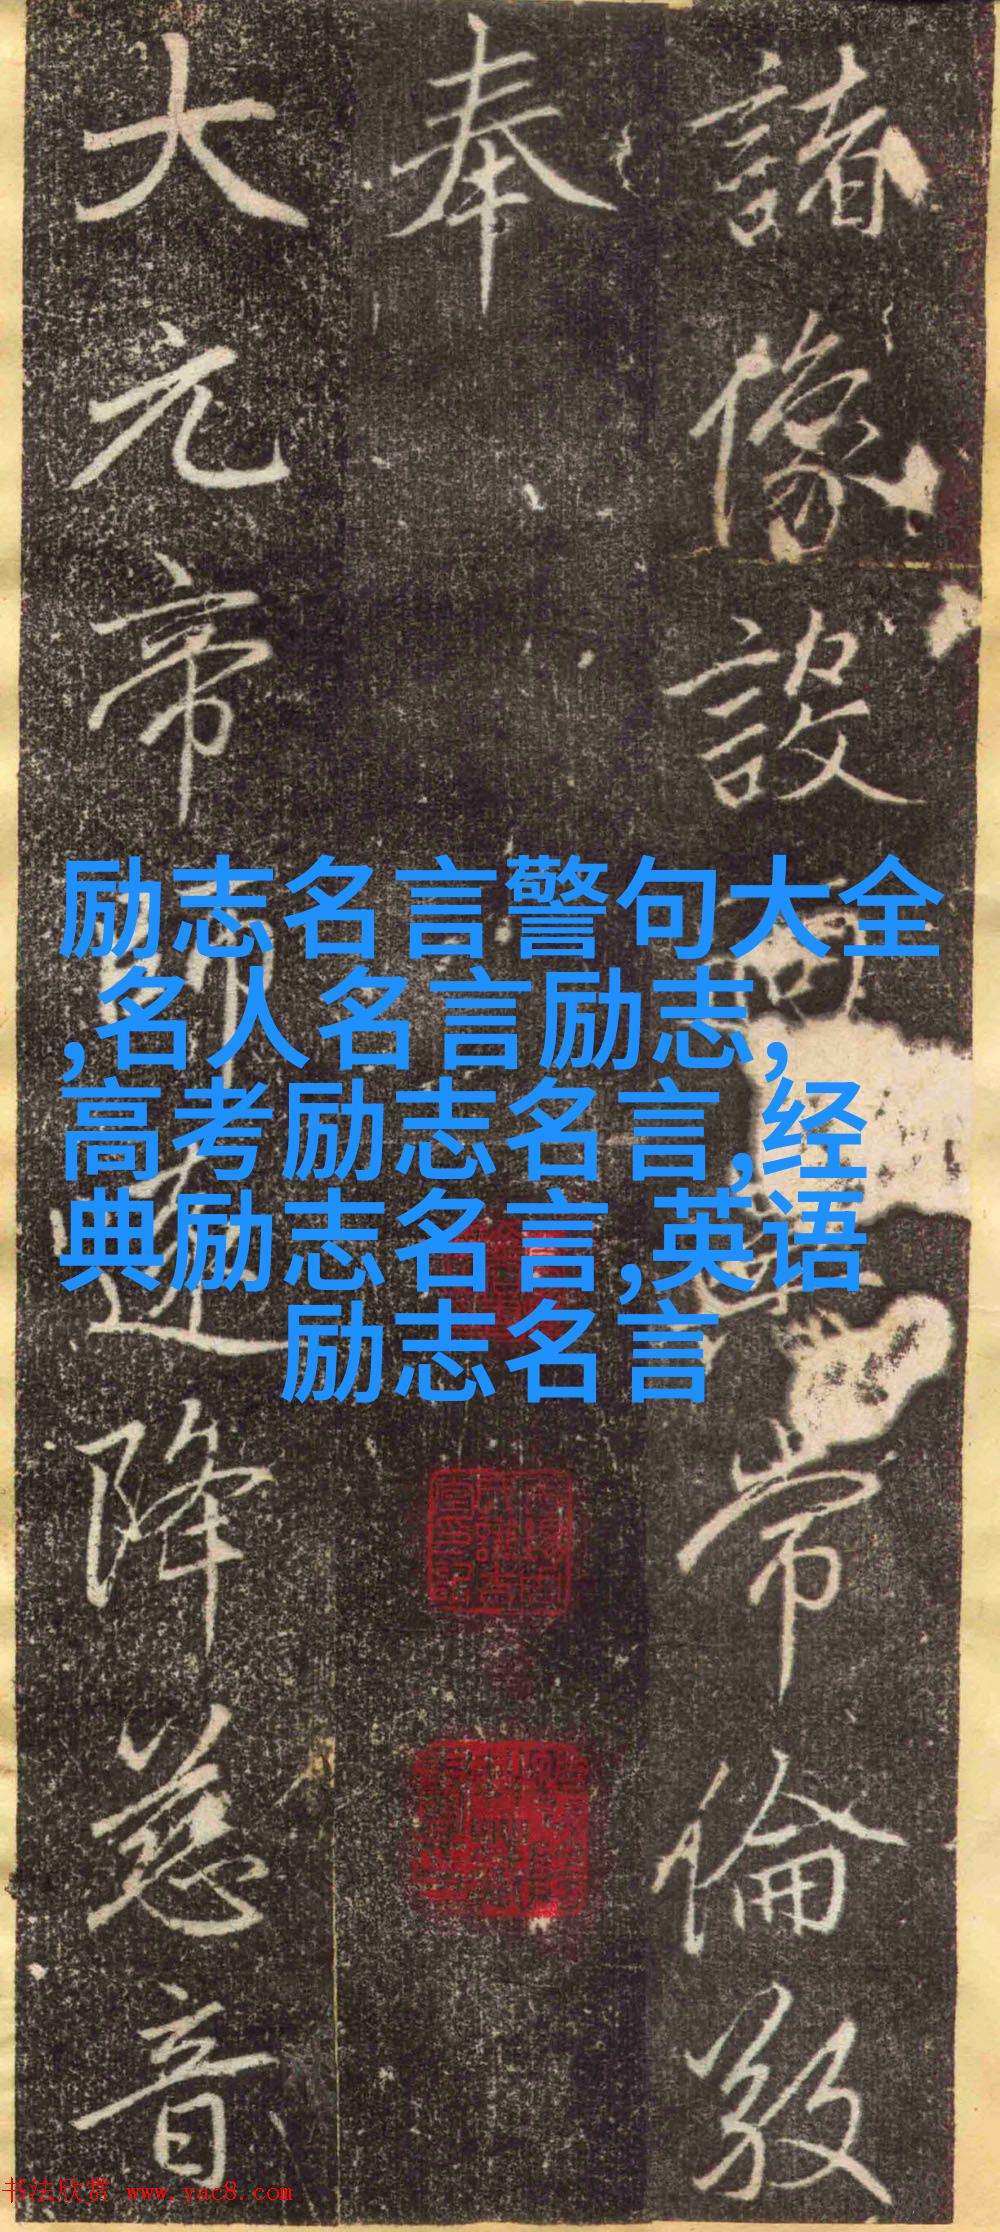 諸像設
常倫敩
奉
大元帝師遂降慈音
励志名言警句大全
,名人名言励志,
高考励志名言,经
典励志名言,英语
励志名言
书法欣赏 www.yac8.com